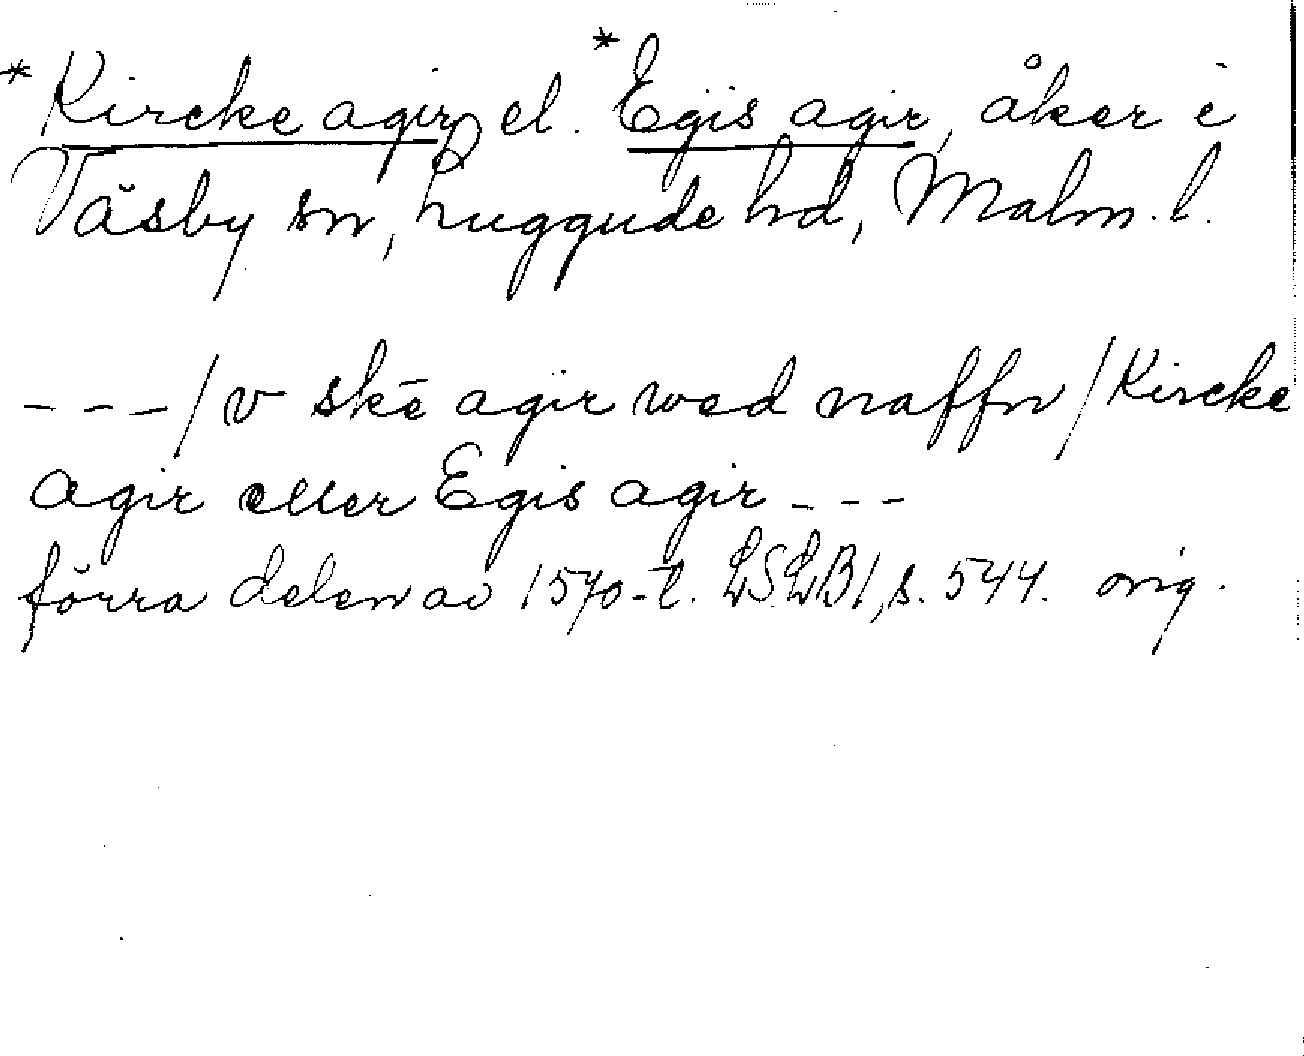 *Kircke agir el. *Egis agir, åker i
Väsby sn, Luggude hd, Malm. l.
--- / v skē agir wed naffn / Kircke
agir eller Egis agir ---
förra delen av 1570-t. LSLB 1, s. 544. orig.